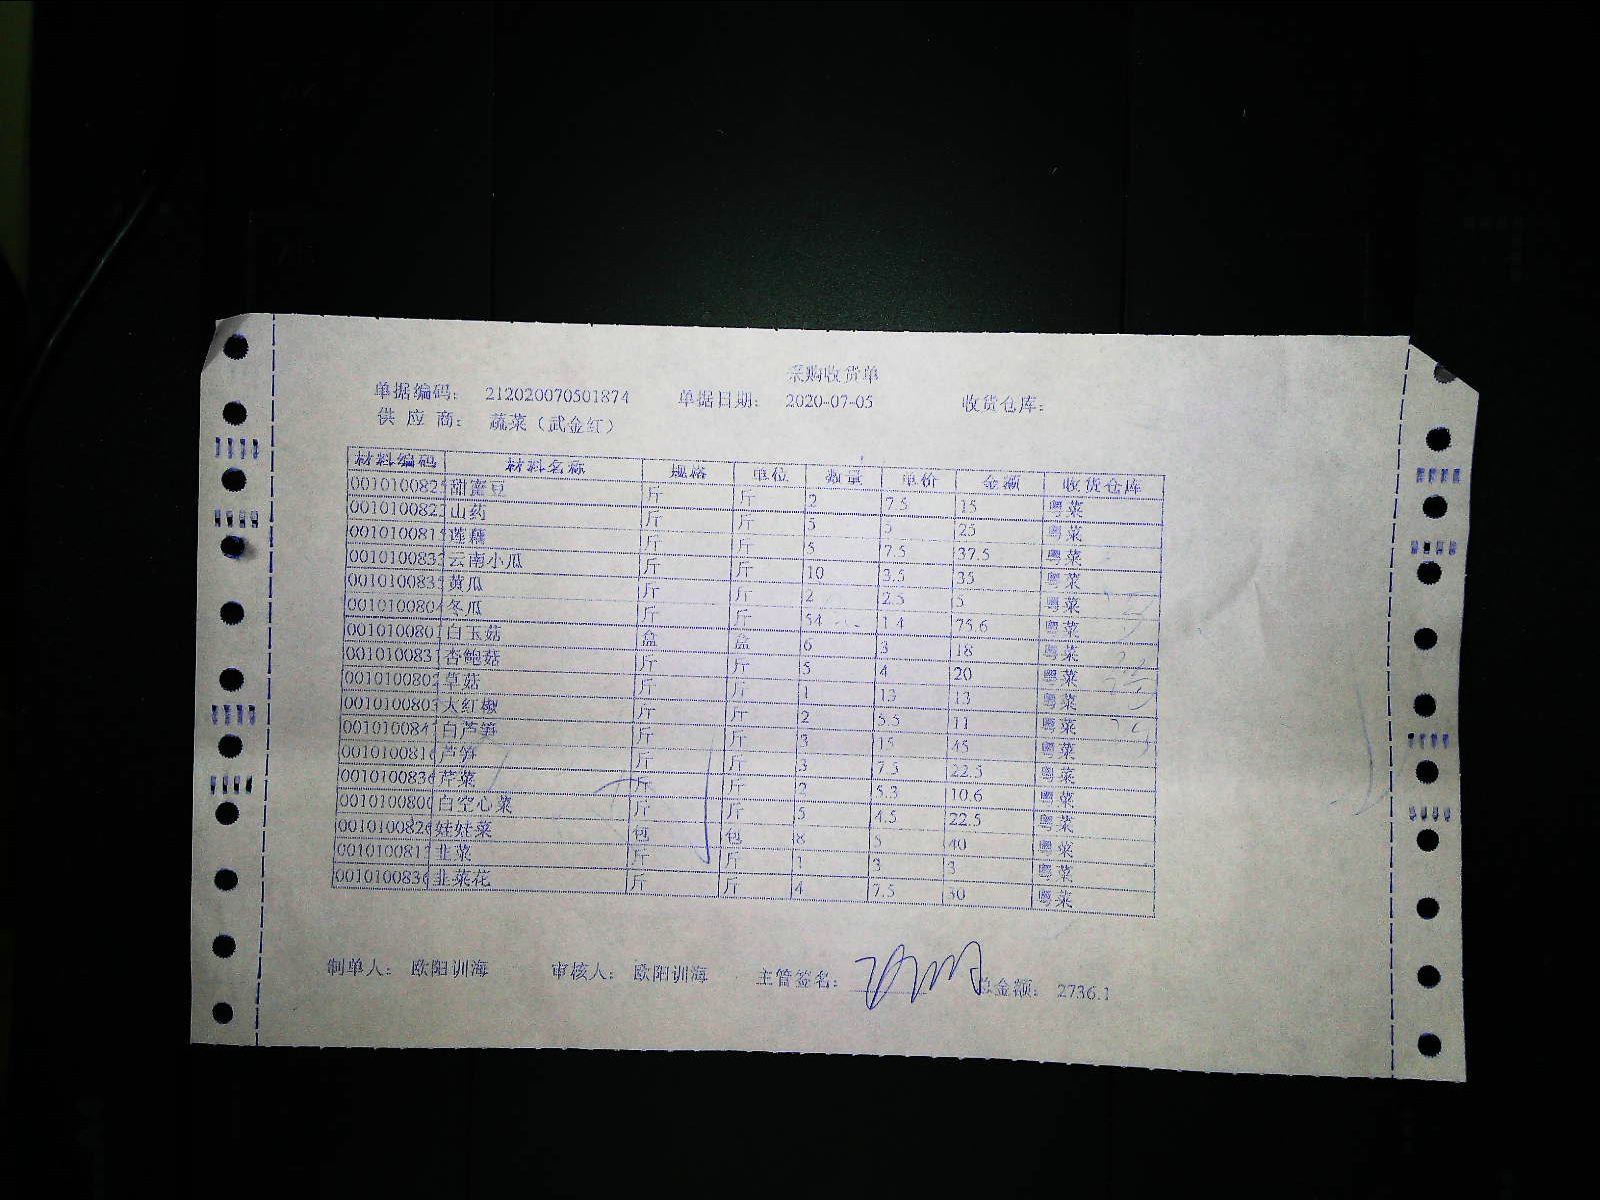 采购收货单
单据编码: 212020070501874 单据日期: 2020-07-05 收货仓库:
供 应 商: 蔬菜（武金红）
材料编码 材料名称 规格 单位 数量 单价 金额 收货仓库
0010100825 甜蜜豆 斤 斤 2 7.5 15 粤菜
001010082 山药 斤 斤 5 5 25 粤菜
001010081 莲藕 斤 斤 5 7.5 37.5 粤菜
001010083 云南小瓜 斤 斤 10 3.5 35 粤菜
001010083 黄瓜 斤 斤 2 2.5 5 粤菜
001010080 冬瓜 斤 斤 54 1.4 75.6 粤菜
001010080 白玉菇 盒 盒 6 3 18 粤菜
001010083 杏鲍菇 斤 斤 5 4 20 粤菜
001010080 草菇 斤 斤 1 13 13 粤菜
001010080 大红椒 斤 斤 2 5.5 11 粤菜
001010084 白芦笋 斤 斤 3 15 45 粤菜
001010081 芦笋 斤 斤 3 7.5 22.5 粤菜
001010083 芹菜 斤 斤 2 5.3 10.6 粤菜
001010080 白空心菜 斤 斤 5 4.5 22.5 粤菜
001010082 娃娃菜 包 包 8 5 40 粤菜
001010081 韭菜 斤 斤 1 3 3 粤菜
001010083 韭菜花 斤 斤 4 7.5 30 粤菜
制单人: 欧阳训海 审核人: 欧阳训海 主管签名: 总金额: 2736.1